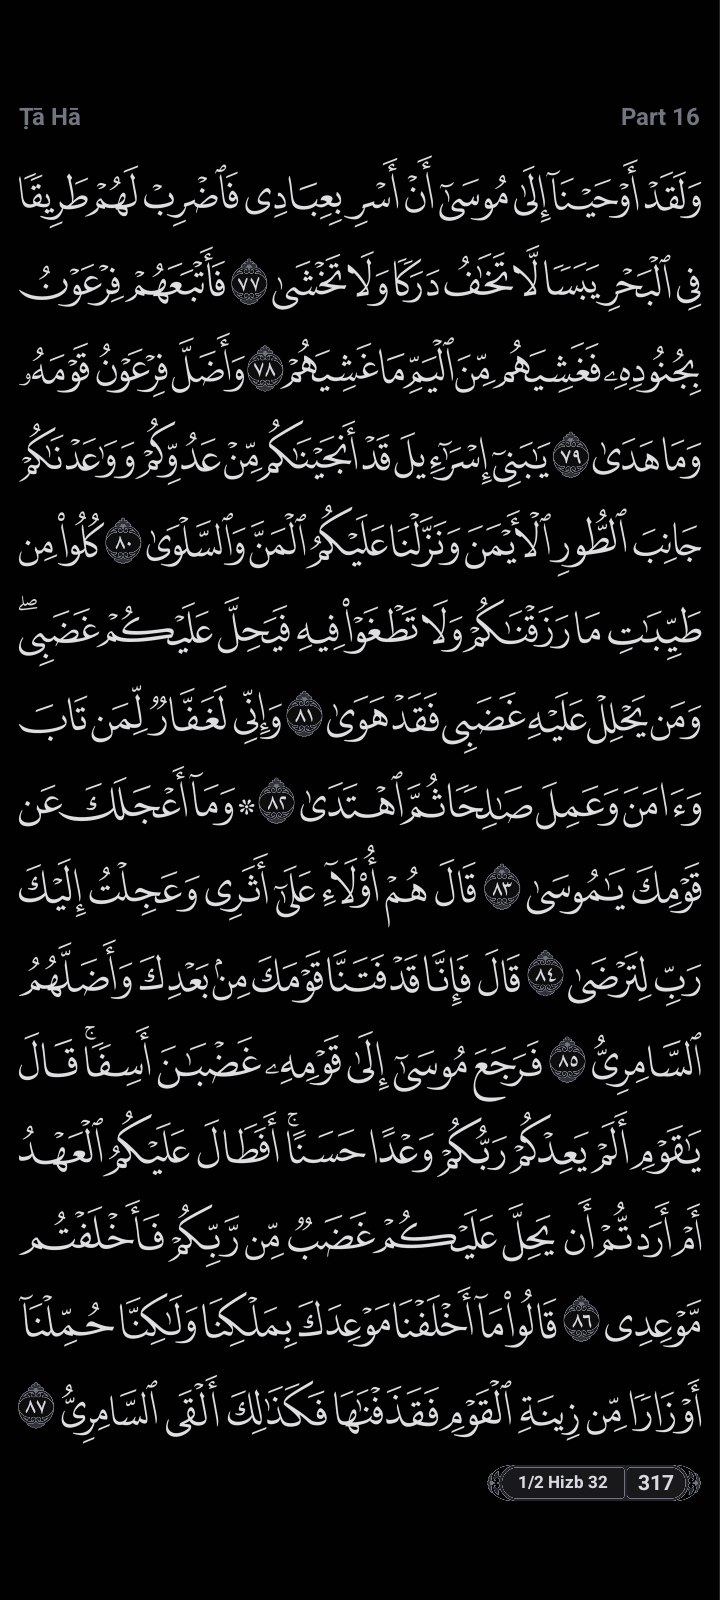 Ṭā Hā
Part 16
وَلَقَدْ أَوْحَيْنَآ إِلَىٰ مُوسَىٰٓ أَنْ أَسْرِ بِعِبَادِى فَٱضْرِبْ لَهُمْ طَرِيقًا
فِى ٱلْبَحْرِ يَبَسًا لَّا تَخَٰفُ دَرَكًا وَلَا تَخْشَىٰ ٧٧ فَأَتْبَعَهُمْ فِرْعَوْنُ
بِجُنُودِهِۦ فَغَشِيَهُم مِّنَ ٱلْيَمِّ مَا غَشِيَهُمْ ٧٨ وَأَضَلَّ فِرْعَوْنُ قَوْمَهُۥ
وَمَا هَدَىٰ ٧٩ يَٰبَنِىٓ إِسْرَٰٓءِيلَ قَدْ أَنجَيْنَٰكُم مِّنْ عَدُوِّكُمْ وَوَٰعَدْنَٰكُمْ
جَانِبَ ٱلطُّورِ ٱلْأَيْمَنَ وَنَزَّلْنَا عَلَيْكُمُ ٱلْمَنَّ وَٱلسَّلْوَىٰ ٨٠ كُلُوا۟ مِن
طَيِّبَٰتِ مَا رَزَقْنَٰكُمْ وَلَا تَطْغَوْا۟ فِيهِ فَيَحِلَّ عَلَيْكُمْ غَضَبِى ۖ
وَمَن يَحْلِلْ عَلَيْهِ غَضَبِى فَقَدْ هَوَىٰ ٨١ وَإِنِّى لَغَفَّارٌ لِّمَن تَابَ
وَءَامَنَ وَعَمِلَ صَٰلِحًا ثُمَّ ٱهْتَدَىٰ ٨٢ ۞ وَمَآ أَعْجَلَكَ عَن
قَوْمِكَ يَٰمُوسَىٰ ٨٣ قَالَ هُمْ أُو۟لَآءِ عَلَىٰٓ أَثَرِى وَعَجِلْتُ إِلَيْكَ
رَبِّ لِتَرْضَىٰ ٨٤ قَالَ فَإِنَّا قَدْ فَتَنَّا قَوْمَكَ مِنۢ بَعْدِكَ وَأَضَلَّهُمُ
ٱلسَّامِرِىُّ ٨٥ فَرَجَعَ مُوسَىٰٓ إِلَىٰ قَوْمِهِۦ غَضْبَٰنَ أَسِفًا ۚ قَالَ
يَٰقَوْمِ أَلَمْ يَعِدْكُمْ رَبُّكُمْ وَعْدًا حَسَنًا ۚ أَفَطَالَ عَلَيْكُمُ ٱلْعَهْدُ
أَمْ أَرَدتُّمْ أَن يَحِلَّ عَلَيْكُمْ غَضَبٌ مِّن رَّبِّكُمْ فَأَخْلَفْتُم
مَّوْعِدِى ٨٦ قَالُوا۟ مَآ أَخْلَفْنَا مَوْعِدَكَ بِمَلْكِنَا وَلَٰكِنَّا حُمِّلْنَآ
أَوْزَارًا مِّن زِينَةِ ٱلْقَوْمِ فَقَذَفْنَٰهَا فَكَذَٰلِكَ أَلْقَى ٱلسَّامِرِىُّ ٨٧
1/2 Hizb 32
317